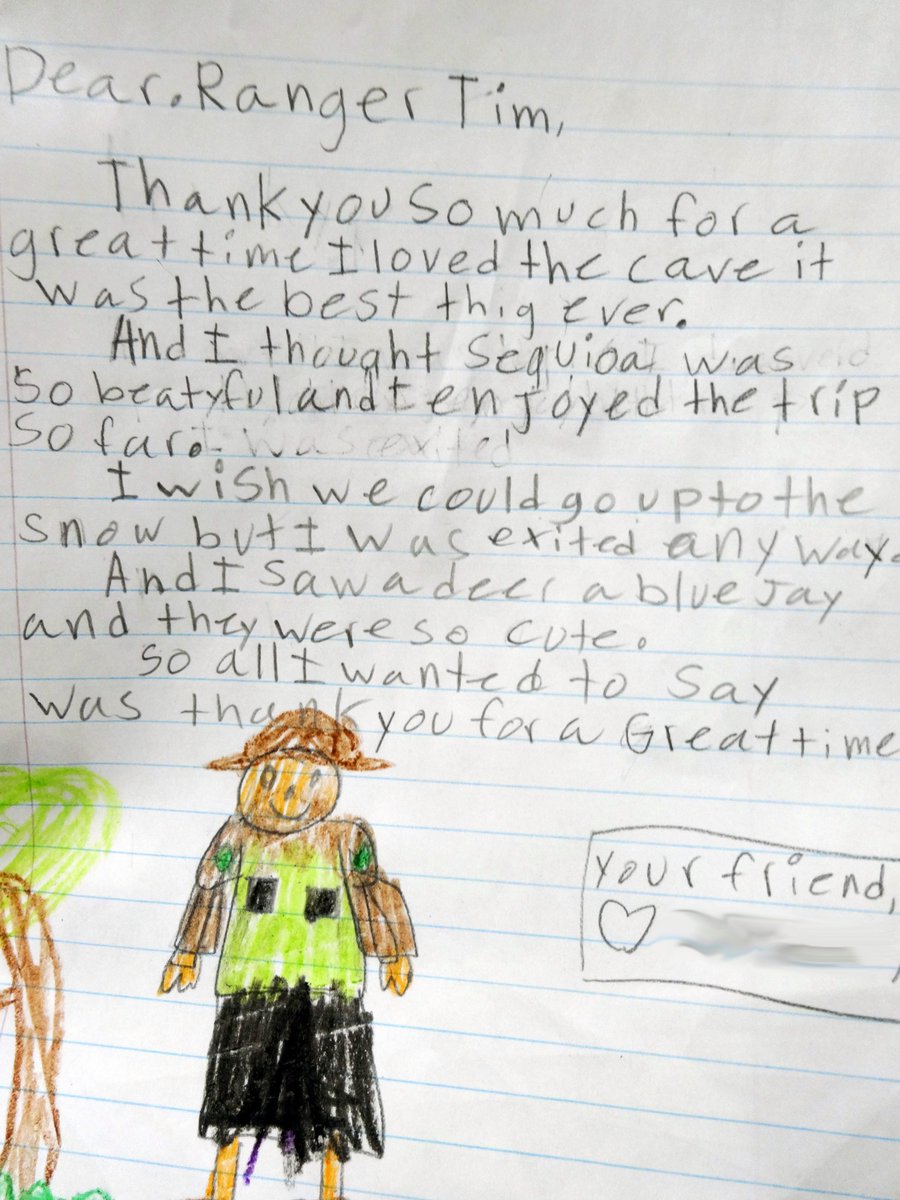 Dear. Ranger Tim,
Thank you so much for a
great time I loved the cave it
was the best thig ever.
And I thought Sequioa was
So beatyful and I enjoyed the trip
So far.
I wish we could go up to the
snow but I was exited any way.
And I saw a deer a blue Jay
and they were so cute.
So all I wanted to say
was thank you for a Great time
your friend,